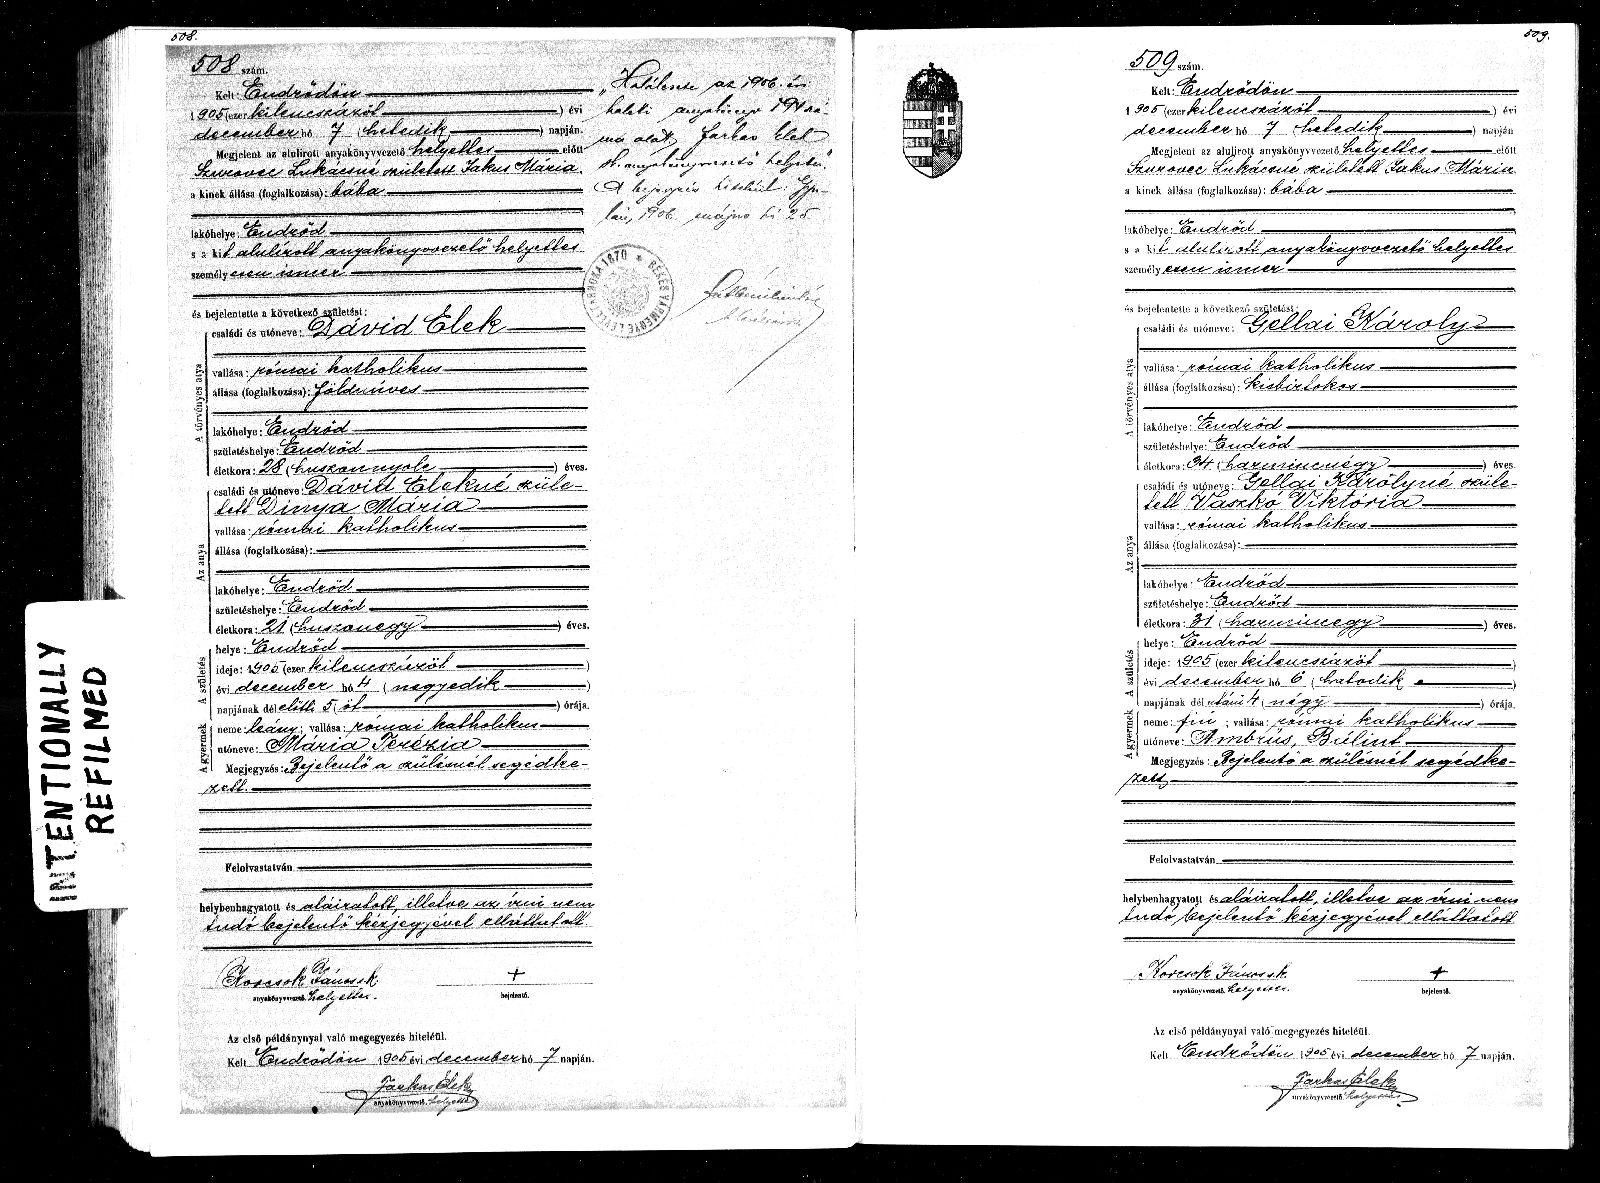 508.
508 szám.
Kelt: Endrődön
1905 (ezer kilencszázöt) évi
december hó 7 (hetedik) napján.
Megjelent az alulirott anyakönyvvezető helyettes előtt
Szurovec Lukácsné született Jakus Mária.
a kinek állása (foglalkozása): bába
lakóhelye: Endrőd
s a kit alulírott anyakönyvvezető helyettes
személyesen ismer
és bejelentette a következő születést:
A törvényes atya
családi és utóneve: Dávid Elek
vallása: római katholikus
állása (foglalkozása): földmíves
lakóhelye: Endrőd
születéshelye: Endrőd
életkora: 28 (huszonnyolc) éves.
Az anya
családi és utóneve: Dávid Elekné szüle-
tett Dinya Mária
vallása: római katholikus
állása (foglalkozása):
lakóhelye: Endrőd
születéshelye: Endrőd
életkora: 21 (huszonegy) éves.
A születés
helye: Endrőd
ideje: 1905 (ezer kilencszázöt)
évi december hó 4 (negyedik)
napjának dél előtti 5 (öt) órája.
A gyermek
neme: leány; vallása: római katholikus
utóneve: Mária Terézia
Megjegyzés: Bejelentő a szülésnél segédke-
zett.
Felolvastatván
helybenhagyatott és aláiratott, illetve az írni nem
tudó bejelentő kézjegyével elláttatott
Korcsok János sk.
anyakönyvvezető. helyettes.
+
bejelentő.
Az első példánynyal való megegyezés hiteléül.
Kelt Endrődön 1905 évi december hó 7 napján.
Farkas Elek
anyakönyvvezető. helyettes
„Halálesete az 1906. évi
haláli anyakönyv
szá-
ma alatt, Farkas Elek
sk. anyakönyvvezető helyettes."
A bejegyzés hiteléül. Gyu-
lán, 1906. május hó 25
BÉKÉS VÁRMEGYE LEVÉLTÁRNOKA 1870
509.
509 szám.
Kelt: Endrődön
1905 (ezer kilencszázöt) évi
december hó 7 (hetedik) napján
Megjelent az alulirott anyakönyvvezető helyettes előtt
Szurovec Lukácsné született Jakus Mária
a kinek állása (foglalkozása): bába
lakóhelye: Endrőd
s a kit alulírott anyakönyvvezető helyettes
személyesen ismer
és bejelentette a következő születést:
A törvényes atya
családi és utóneve: Gellai Károly
vallása: római katholikus
állása (foglalkozása): kisbirtokos
lakóhelye: Endrőd
születéshelye: Endrőd
életkora: 34 (harmincnégy) éves.
Az anya
családi és utóneve: Gellai Károlyné szüle-
tett Vaszkó Viktória
vallása: római katholikus
állása (foglalkozása):
lakóhelye: Endrőd
születéshelye: Endrőd
életkora: 31 (harmincegy) éves.
A születés
helye: Endrőd
ideje: 1905 (ezer kilencszázöt)
évi december hó 6 (hatodik)
napjának dél utáni 4 (négy) órája.
A gyermek
neme: fiu; vallása: római katholikus
utóneve: Ambrús, Bálint
Megjegyzés: Bejelentő a szülésnél segédke-
zett
Felolvastatván
helybenhagyatott és aláiratott, illetve az írni nem
tudó bejelentő kézjegyével elláttatott
Korcsok János sk.
anyakönyvvezető. helyettes.
+
bejelentő.
Az első példánynyal való megegyezés hiteléül.
Kelt Endrődön 1905 évi december hó 7 napján.
Farkas Elek
anyakönyvvezető. helyettes
INTENTIONALLY
REFILMED